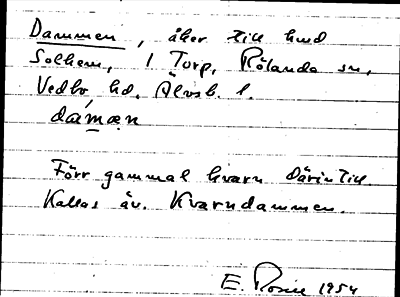 Dammen, åker till hmd
Solhem, 1 Torp, Rölanda sn,
Vedbo hd, Älvsb. l.
dámæn
Förr gammal kvarn därintill.
Kallas äv. Kvarndammen.
E. 1954